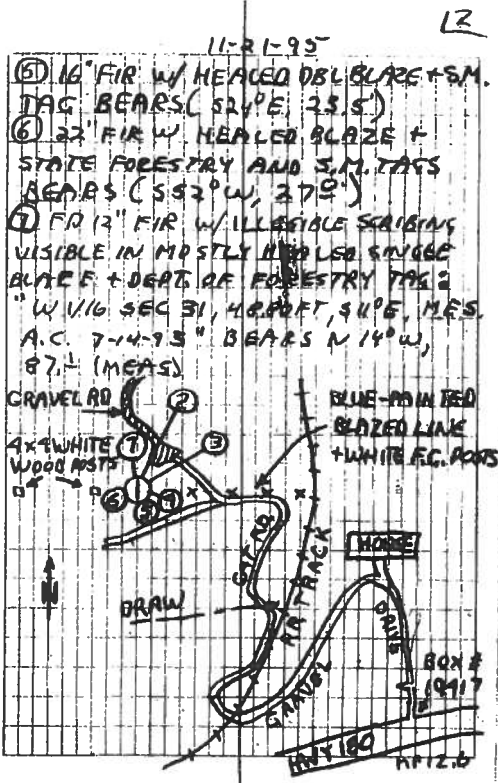 12
11-21-95
⑤ 16" FIR W/ HEALED DBL BLAZE + S.M.
TAG BEARS (S24°E, 23.5')
⑥ 22" FIR W/ HEALED BLAZE +
STATE FORESTRY AND S.M. TAGS
BEARS (S52°W, 27.0')
⑦ FD 12" FIR W/ ILLEGIBLE SCRIBING
VISIBLE IN MOSTLY HEALED SINGLE
BLAZE + DEPT. OF FORESTRY TAG:
"W 1/16 SEC 31, FT, S11°E, M.E.S.
A.C. 7-14-93" BEARS N14°W,
87.1 (MEAS)
GRAVEL RD
②
BLUE-PAINTED
BLAZED LINE
+ WHITE F.G. POSTS
4x4 WHITE
WOOD POSTS
⑦
③
⑥ ⑤ ④
CAT RD.
RR TRACK
HOUSE
N
DRAW
DRIVE
GRAVEL
BOX #
19417
HWY 180
MP 12.6